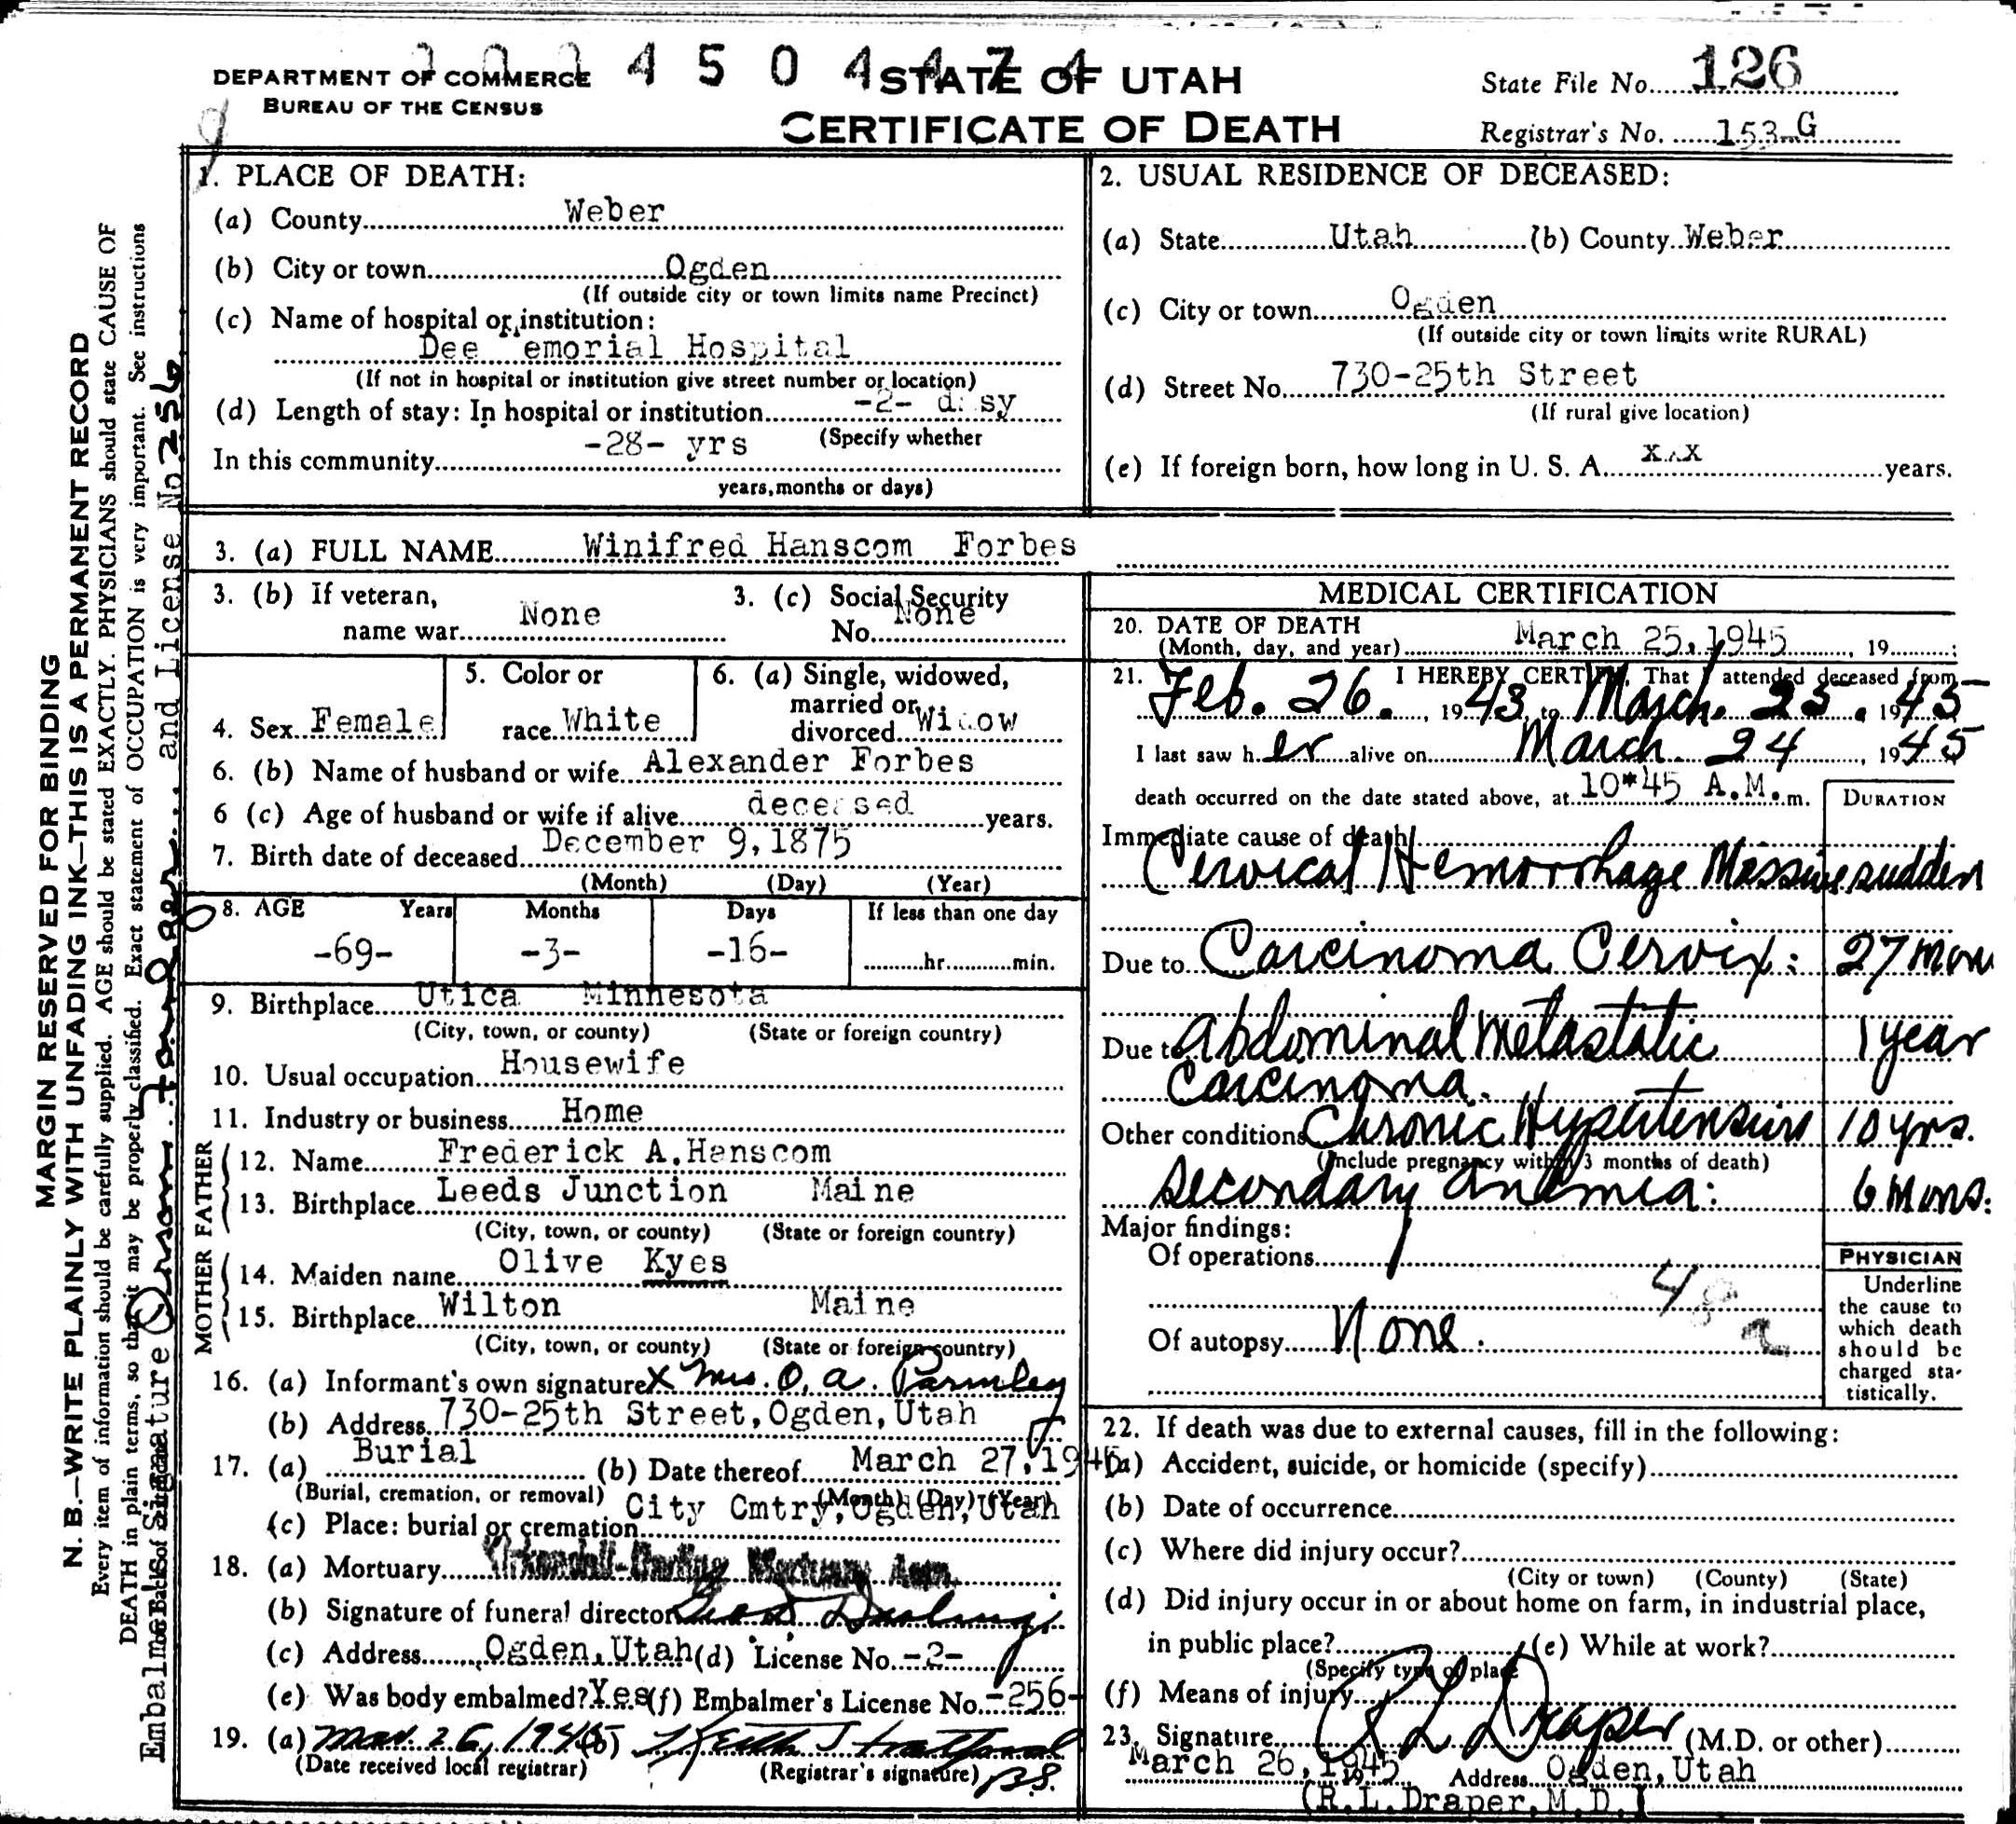 DEPARTMENT OF COMMERCE
BUREAU OF THE CENSUS
4 5 0 4 4 7 4
STATE OF UTAH
CERTIFICATE OF DEATH
State File No. 126
Registrar's No. 153-G
1. PLACE OF DEATH:
(a) County Weber
(b) City or town Ogden
(If outside city or town limits name Precinct)
(c) Name of hospital or institution:
Dee emorial Hospital
(If not in hospital or institution give street number or location)
(d) Length of stay: In hospital or institution -2- dasy
(Specify whether
In this community -28- yrs
years, months or days)
2. USUAL RESIDENCE OF DECEASED:
(a) State Utah (b) County Weber
(c) City or town Ogden
(If outside city or town limits write RURAL)
(d) Street No. 730-25th Street
(If rural give location)
(e) If foreign born, how long in U. S. A. XXX years.
3. (a) FULL NAME Winifred Hanscom Forbes
3. (b) If veteran, name war None
3. (c) Social Security No. None
4. Sex Female
5. Color or race White
6. (a) Single, widowed, married or divorced Widow
6. (b) Name of husband or wife Alexander Forbes
6 (c) Age of husband or wife if alive deceased years.
7. Birth date of deceased December 9, 1875
(Month) (Day) (Year)
8. AGE Years Months Days If less than one day
-69- -3- -16- hr. min.
9. Birthplace Utica Minnesota
(City, town, or county) (State or foreign country)
10. Usual occupation Housewife
11. Industry or business Home
FATHER
12. Name Frederick A. Hanscom
13. Birthplace Leeds Junction Maine
(City, town, or county) (State or foreign country)
MOTHER
14. Maiden name Olive Kyes
15. Birthplace Wilton Maine
(City, town, or county) (State or foreign country)
16. (a) Informant's own signature X Mrs. O. A. Parmley
(b) Address 730-25th Street, Ogden, Utah
17. (a) Burial (b) Date thereof March 27, 1945
(Burial, cremation, or removal) (Month) (Day) (Year)
(c) Place: burial or cremation City Cmtry, Ogden, Utah
18. (a) Mortuary Kirkendall-Darling Mortuary Assn.
(b) Signature of funeral director Darling
(c) Address Ogden, Utah (d) License No. -2-
(e) Was body embalmed? Yes (f) Embalmer's License No. -256-
19. (a) Mar. 26, 1945 (b) Keith Stratford
(Date received local registrar) (Registrar's signature) B.S.
MEDICAL CERTIFICATION
20. DATE OF DEATH
(Month, day, and year) March 25, 1945, 19 ;
21. I HEREBY CERTIFY, That I attended deceased from
Feb. 26, 1943 to March 25, 1945
I last saw her alive on March 24 1945
death occurred on the date stated above, at 10*45 A.M. m.
DURATION
Immediate cause of death
Cervical Hemorrhage Massive sudden
Due to Carcinoma Cervix: 27 mon
Due to Abdominal Metastatic 1 year
Carcinoma.
Other conditions Chronic Hypertension 10 yrs.
(Include pregnancy within 3 months of death)
Secondary Anemia: 6 mons.
Major findings:
Of operations
Of autopsy None.
48 a
PHYSICIAN
Underline
the cause to
which death
should be
charged sta-
tistically.
22. If death was due to external causes, fill in the following:
(a) Accident, suicide, or homicide (specify)
(b) Date of occurrence
(c) Where did injury occur?
(City or town) (County) (State)
(d) Did injury occur in or about home on farm, in industrial place,
in public place? (e) While at work?
(Specify type of place
(f) Means of injury
23. Signature R L Draper (M.D. or other)
March 26, 1945 Address Ogden, Utah
(R.L. Draper, M.D.)
MARGIN RESERVED FOR BINDING
N. B.—WRITE PLAINLY WITH UNFADING INK—THIS IS A PERMANENT RECORD
Every item of information should be carefully supplied. AGE should be stated EXACTLY. PHYSICIANS should state CAUSE OF
DEATH in plain terms, so that it may be properly classified. Exact statement of OCCUPATION is very important. See instructions
Embalmer's Signature and License No 256